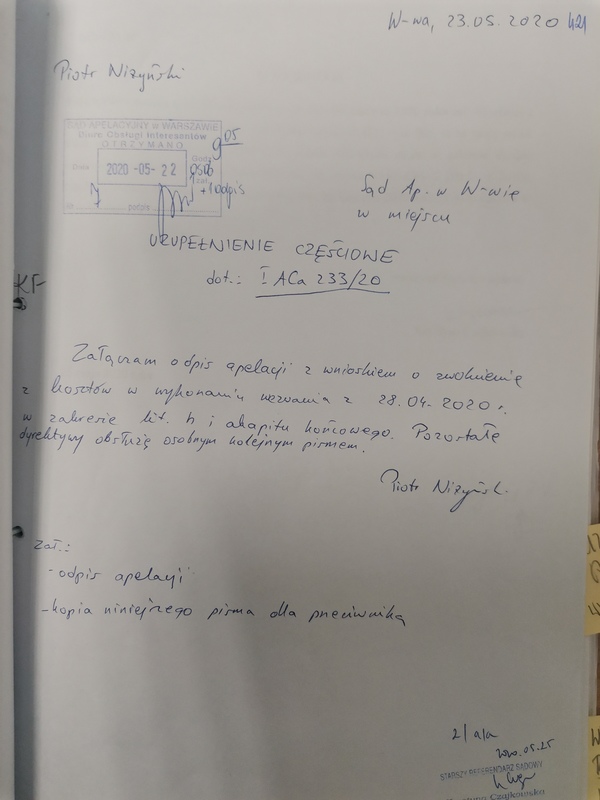 W-wa, 23.05.2020 421
Piotr Niżyński
SĄD APELACYJNY w WARSZAWIE
Biuro Obsługi Interesantów
OTRZYMANO
9 05
2020 -05- 22
+1 odpis
podpis
Sąd Ap. w W-wie
w miejscu
UZUPEŁNIENIE CZĘŚCIOWE
dot.: I ACa 233/20
KF
Załączam odpis apelacji z wnioskiem o zwolnienie
z kosztów w wykonaniu wezwania z 28.04.2020 r.
w zakresie lit. h i akapitu końcowego. Pozostałe
dyrektywy obsłużę osobnym kolejnym pismem.
Piotr Niżyński
Zał.:
- odpis apelacji
- kopia niniejszego pisma dla przeciwnika
2/ a/a
2020.05.25
STARSZY REFERENDARZ SĄDOWY
Czajkowska